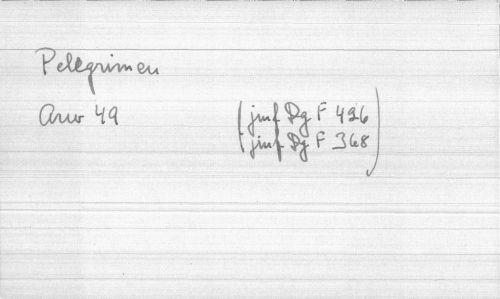 Pelegrimen
Arw 49
(jmf Dg F 426
jmf Dg F 368)